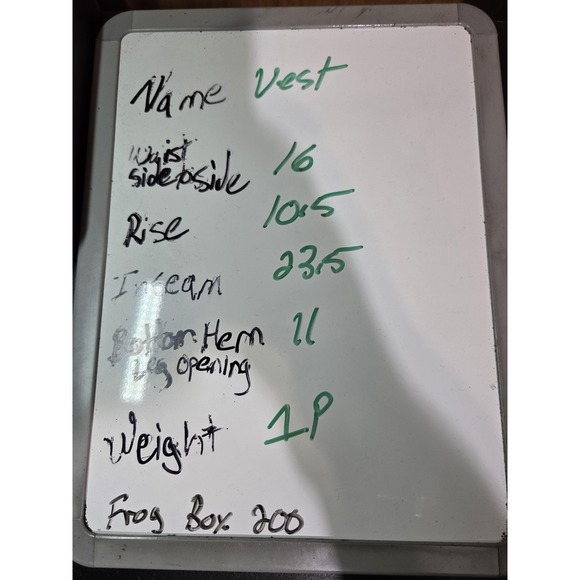 Name Vest
Waist
side to side 16
Rise 10.5
Inseam 23.5
Bottom Hem 11
Leg opening
Weight 1P
Frog Box 200